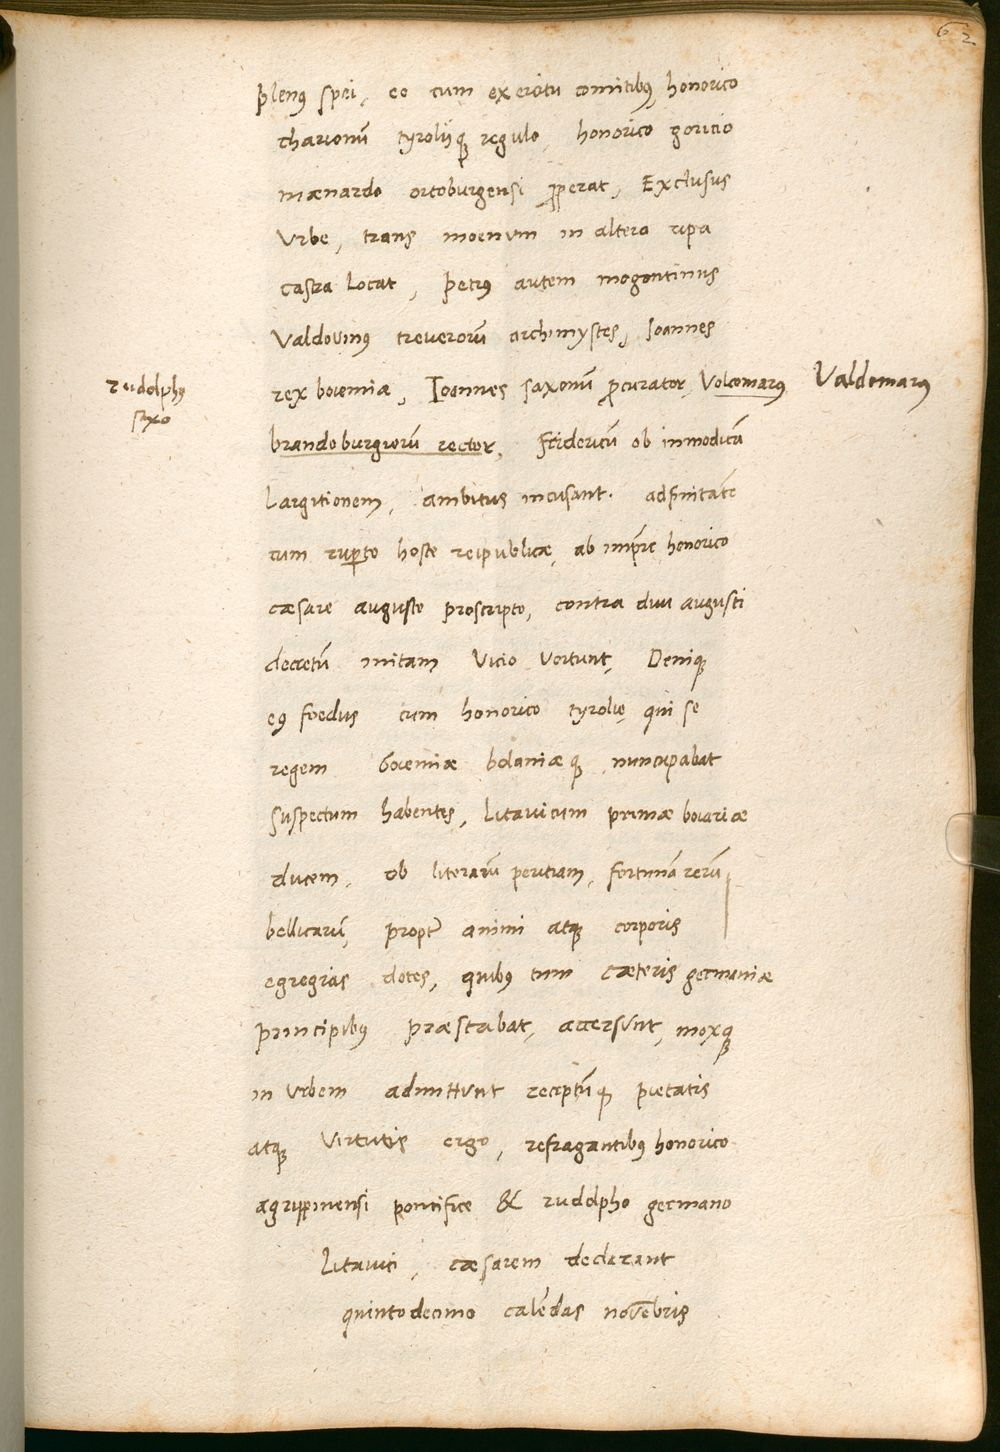 62
plenus spei, eo cum exercitu comitibus honorico
charionū tyroliiq; regulo, honorico goricio
mænardo ortoburgensi properat, Exclusus
Urbe, trans moenum in altera ripa
castra locat, petrus autem mogontinus
Valdovinus treverorū archimystes, Ioannes
rex boiemiæ, Ioannes saxonū procurator, Volcomarus Valdomarus
rudolphus
saxo
brandoburgiorū rector, Fridericū ob inmodicā
largitionem, ambitus incusant. adfinitatē
cum ruperto hoste reipublicæ, ab impre honorico
cæsare augusto proscripto, contra divi augusti
decretū initam Vicio vortunt, Deniq;
eius foedus cum honorico tyrolię qui se
regem boiemiæ bolaniæq; nuncupabat
suspectum habentes, litavicum primæ boiariæ
ducem, ob literarū peritiam, fortunā rerū
bellicarū, propter animi atq; corporis
egregias dotes, quibus tum cæteris germaniæ
principibus præstabat, accersunt, moxq;
in Urbem admittunt receptūq; pietatis
atq; Virtutis ergo, refragantibus honorico
agrippinensi pontifice & rudolpho germano
litavici, cæsarem declarant
quintodecimo calēdas novēbris